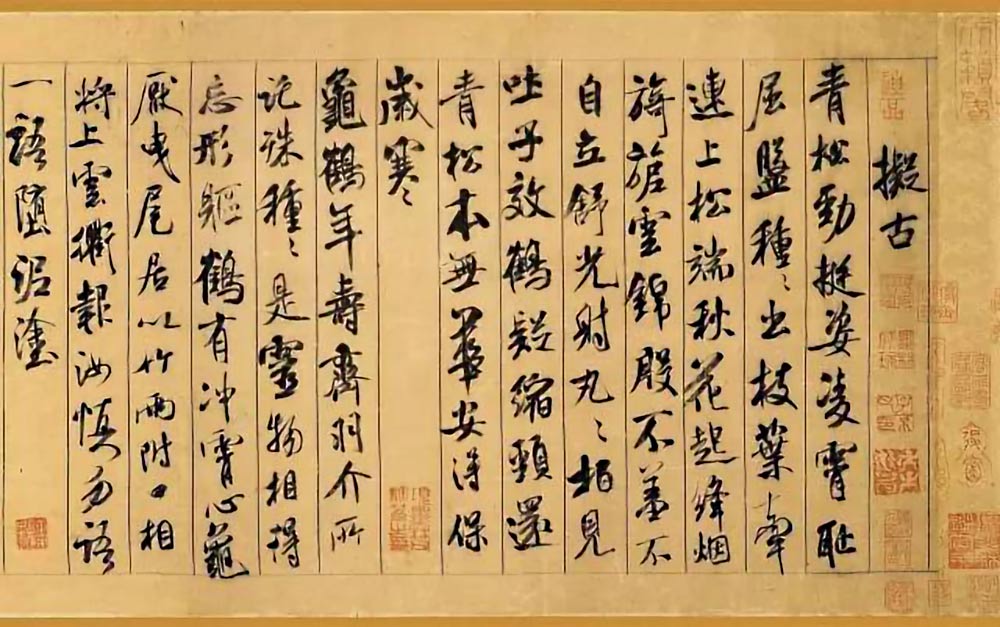 擬古
青松勁挺姿凌霄恥
屈盤種〻出枝葉牽
連上松端秋花起絳烟
旖旎雲錦殷不羞不
自立舒光射丸〻柏見
吐子效鶴疑縮頸還
青松本無華安得保
歲寒
龜鶴年壽齊羽介所
託殊種〻是靈物相得
忘形軀鶴有冲霄心龜
厭曳尾居以竹兩附口相
將上雲衢報汝慎勿語
一語墮泥塗